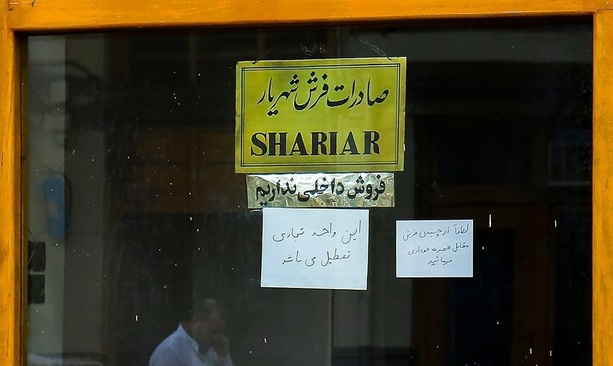 صادرات فرش شهریار
SHARIAR
فروش داخلی نداریم
این واحد تجاری
تعطیل می باشد
لطفاً از چیدن فرش
مقابل حجره خودداری
فرمائید